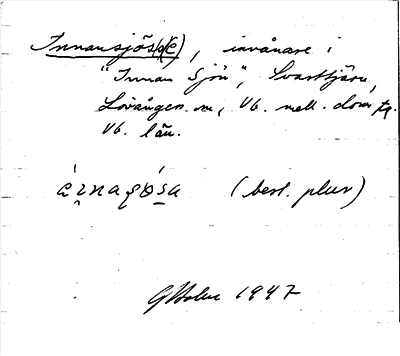 Innansjös(e), invånare i
"Innan Sjön", Svarttjärn,
Lövångers sn, Vb. mell. domsg.
Vb. län.
(best. plur)
GHolm 1947